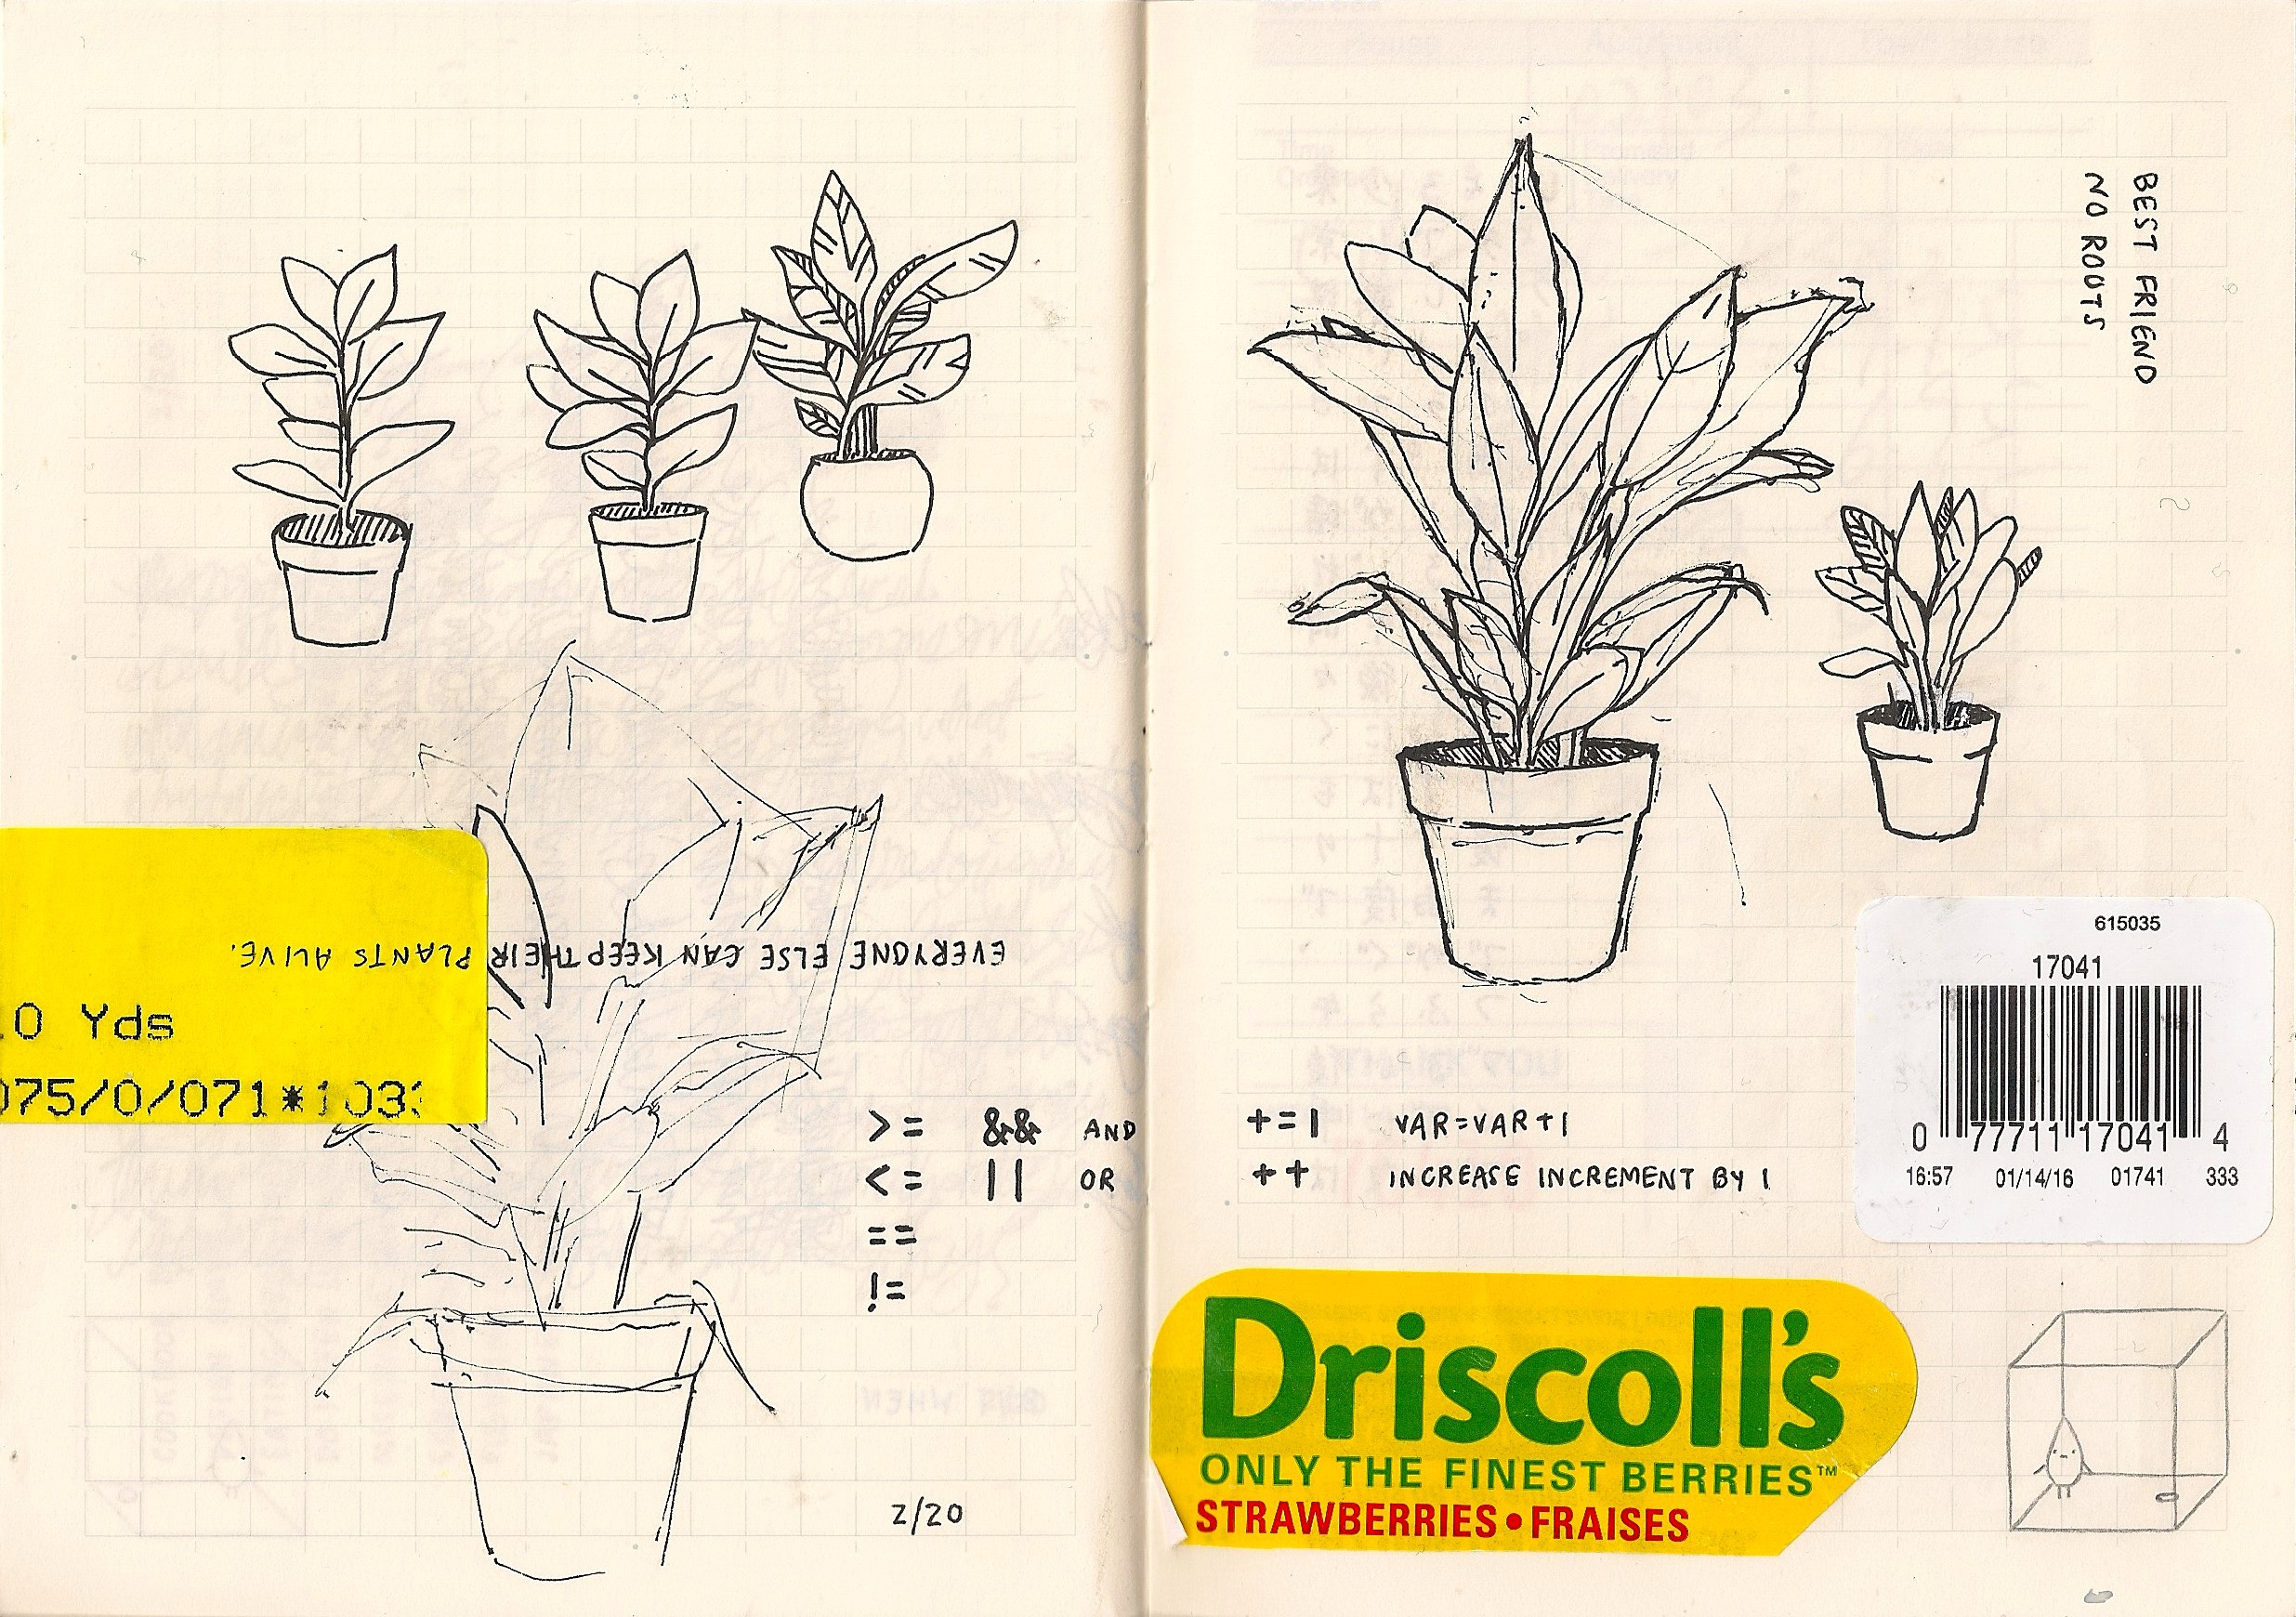 EVERYONE ELSE CAN KEEP THEIR PLANTS ALIVE.
.0 Yds
075/0/071*103
>= && AND
<= || OR
==
!=
2/20
BEST FRIEND
NO ROOTS
+=1 VAR=VAR+1
++ INCREASE INCREMENT BY 1
615035
17041
0 77711 17041 4
16:57 01/14/16 01741 333
Driscoll's
ONLY THE FINEST BERRIES™
STRAWBERRIES • FRAISES